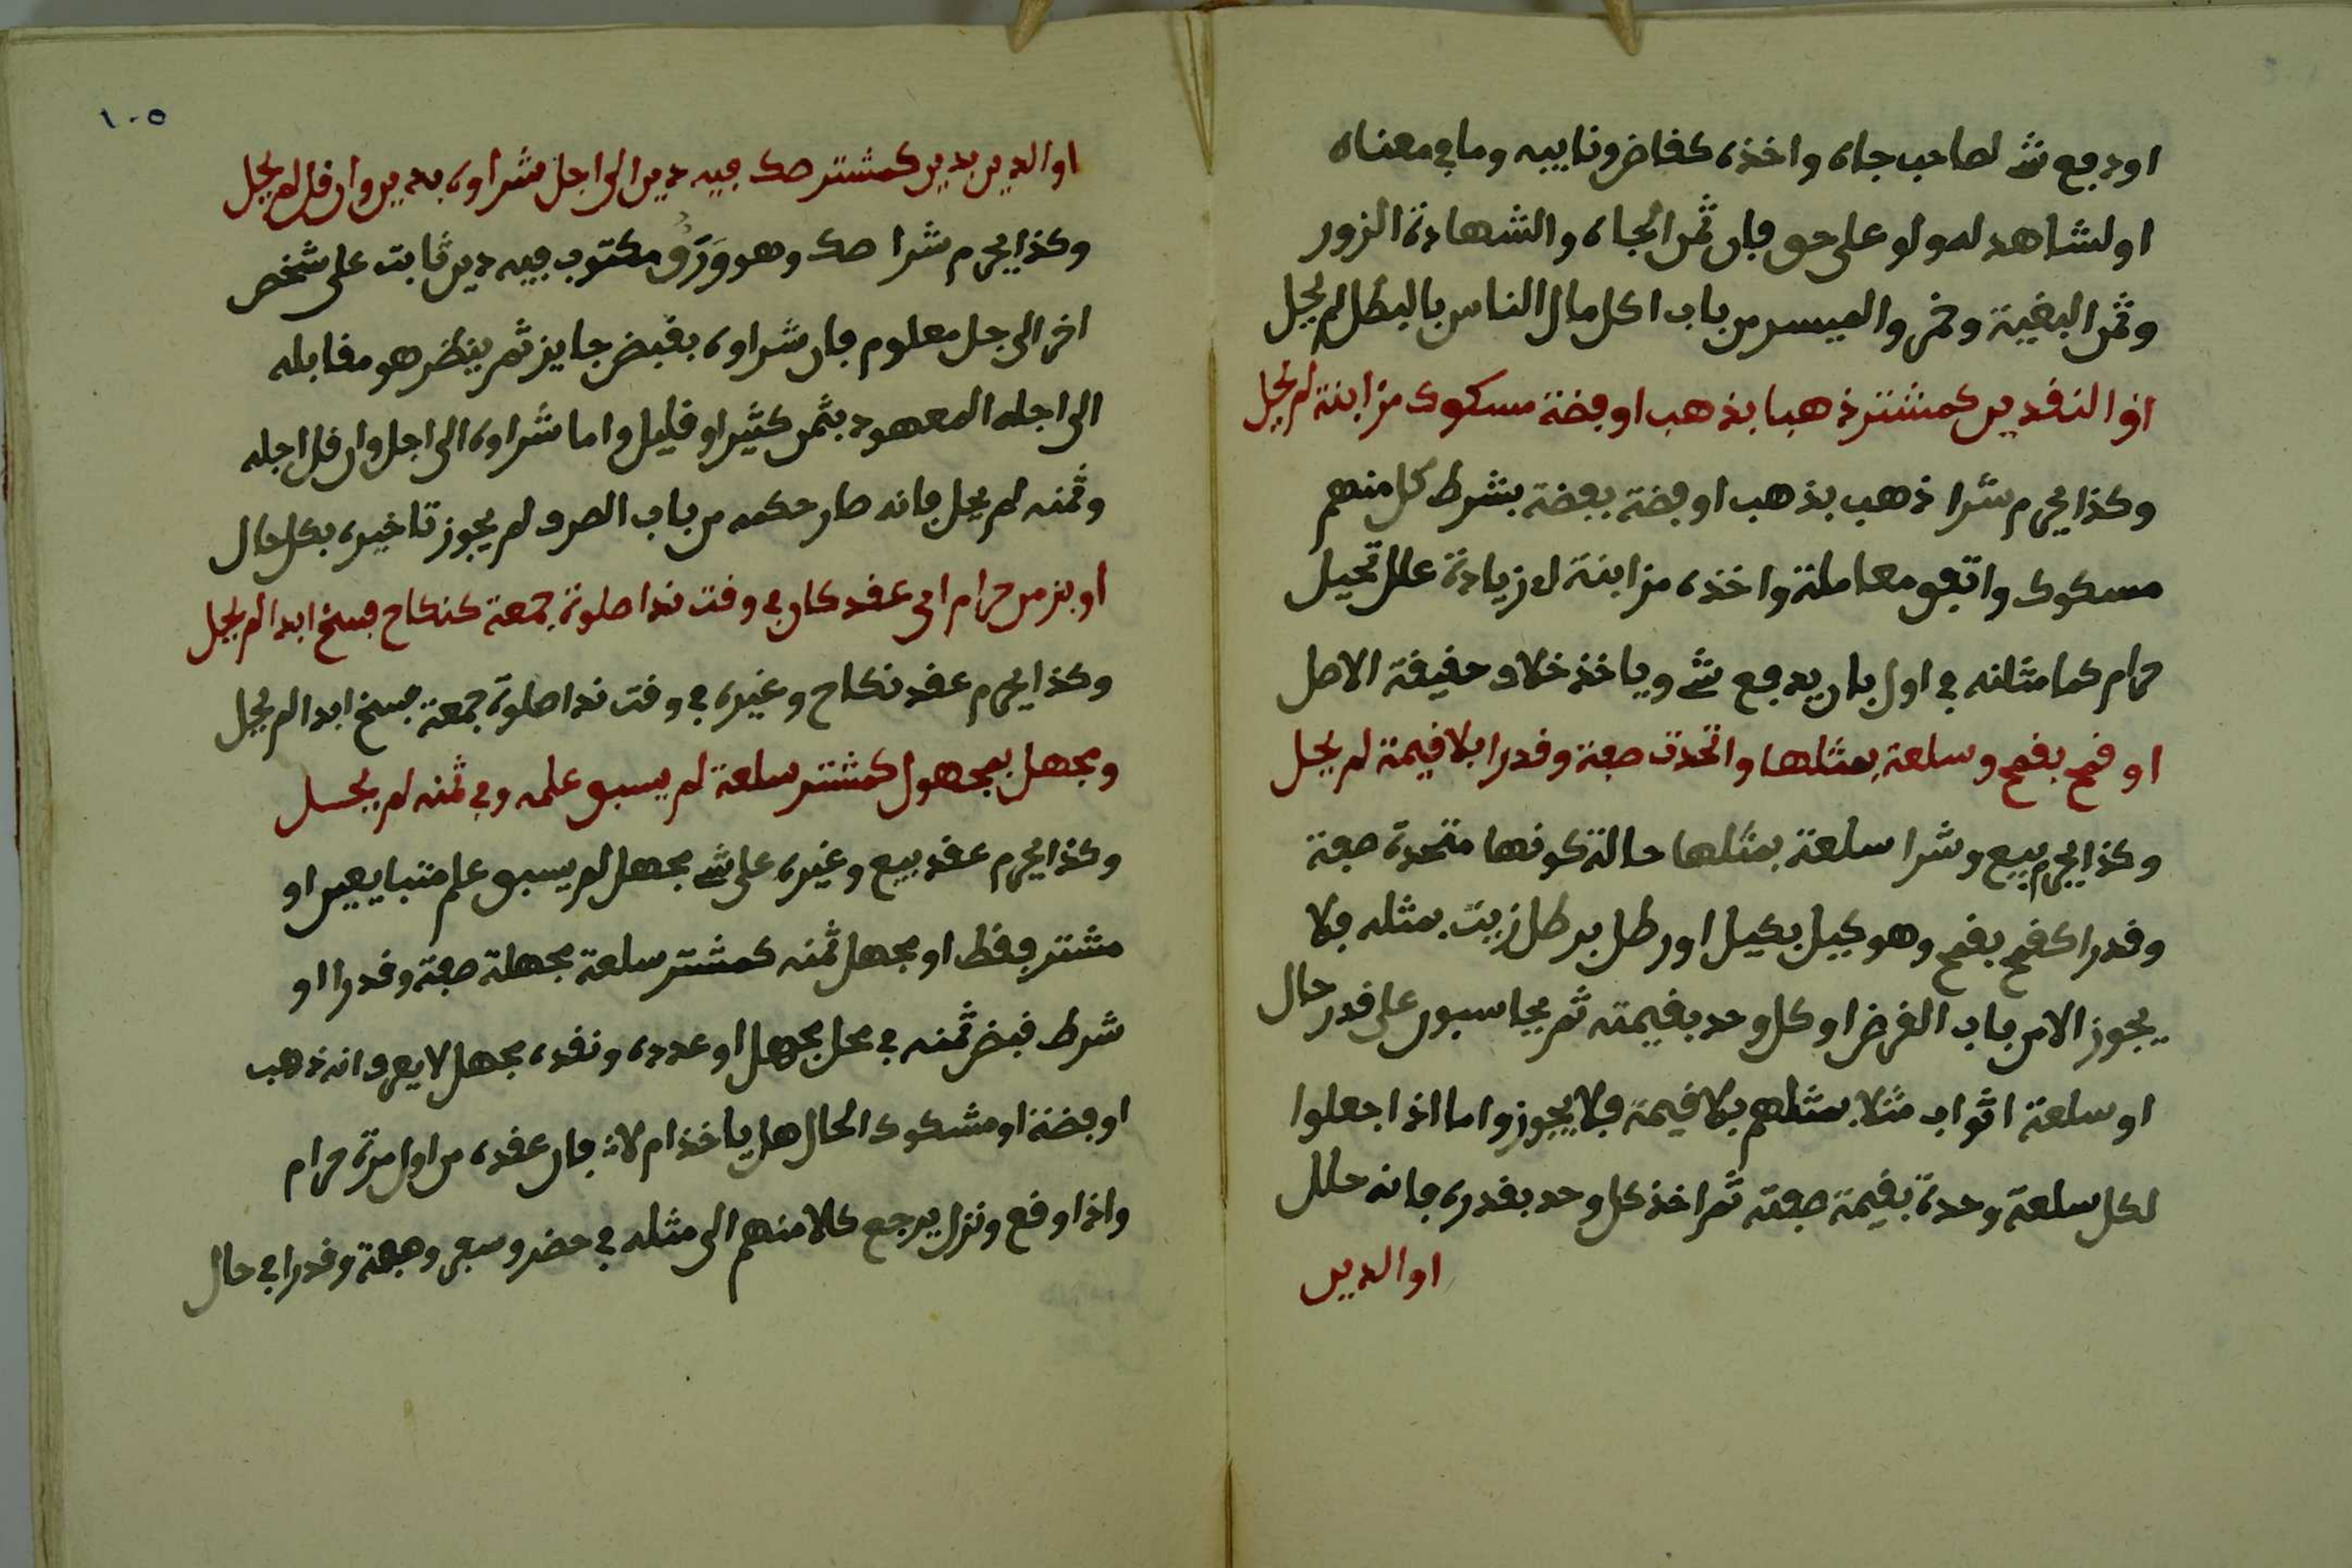 او دفع شے لصاحب جاه واخذه كفاض ونايبه وما في معناه
او لشاهد له ولو على حق فان ثمن الجاه والشهادة الزور
وثمن البغية وخمر والميسر من باب اكل مال الناس بالبطل لم يحل
او النقدين كمشتر ذهبا بذهب او فضة مسكوك مزابنة لم يحل
وكذا يحرم شرا ذهب بذهب او فضة بفضة بشرط كل منهم
مسكوك واتفق معاملة واخذه مزابنة اى زيادة علل تحيل
حرام كما مثاله في اول بان يدفع شے وياخذ خلاف حقيقة الاصل
او قمح بقمح وسلعة بمثلها واتحدت صفة وقدرا بلا قيمة لم يحل
وكذا يحرم بيع وشرا سلعة بمثلها حالة كونها متحدة صفة
وقدرا كقمح بقمح وهو كيل بكيل او رطل برطل زيت بمثله فلا
يجوز الا من باب القرض او كل وحد بقيمته ثم يحاسبون على قدر حال
او سلعة اثواب مثلا بمثلهم بلا قيمة فلا يجوز واما اذا جعلوا
لكل سلعة وحدة بقيمة صفته ثم اخذ كل وحد بقدره فانه حلل
او الدين
١٠٥
او الدين بدين كمشتر صك فيه دين الى اجل شراوه بدين وان قل لم يحل
وكذا يحرم شرا صك وهو وَرَقٌ مكتوب فيه دين ثابت على شخص
اخر الى جل معلوم فان شراوه بقبض جايز ثم ينظر هو مقابله
الى اجله المعهود بثمن كثير او قليل واما شراوه الى اجل وان قل اجله
وثمنه لم يحل فانه صار حكمه من باب الصرف لم يجوز تاخيره بكل حال
او بزمن حرام اى عقد كان في وقت ندا صلوة جمعة كنكاح فسخ ابدا لم يحل
وكذا يحرم عقد نكاح وغيره في وقت ندا صلوة جمعة فسخ ابدا لم يحل
ومجهل بمجهول كمشتر سلعة لم يسبق علمه وفي ثمنه لم يحسل
وكذا يحرم عقد بيع وغيره على شے مجهل لم يسبق علم متبايعين او
مشتر فقط او مجهل ثمنه كمشتر سلعة مجهلة صفة وقدرا او
شرط قبض ثمنه في محل مجهل او عدده ونقده مجهل لا يعرف انه ذهب
او فضة او مشكوك الحال هل ياخذ ام لا فان عقده من اول مرة حرام
واذا وقع ونزل يرجع كلا منهم الى مثله في حضر وسعر وصفة وقدرا في حال